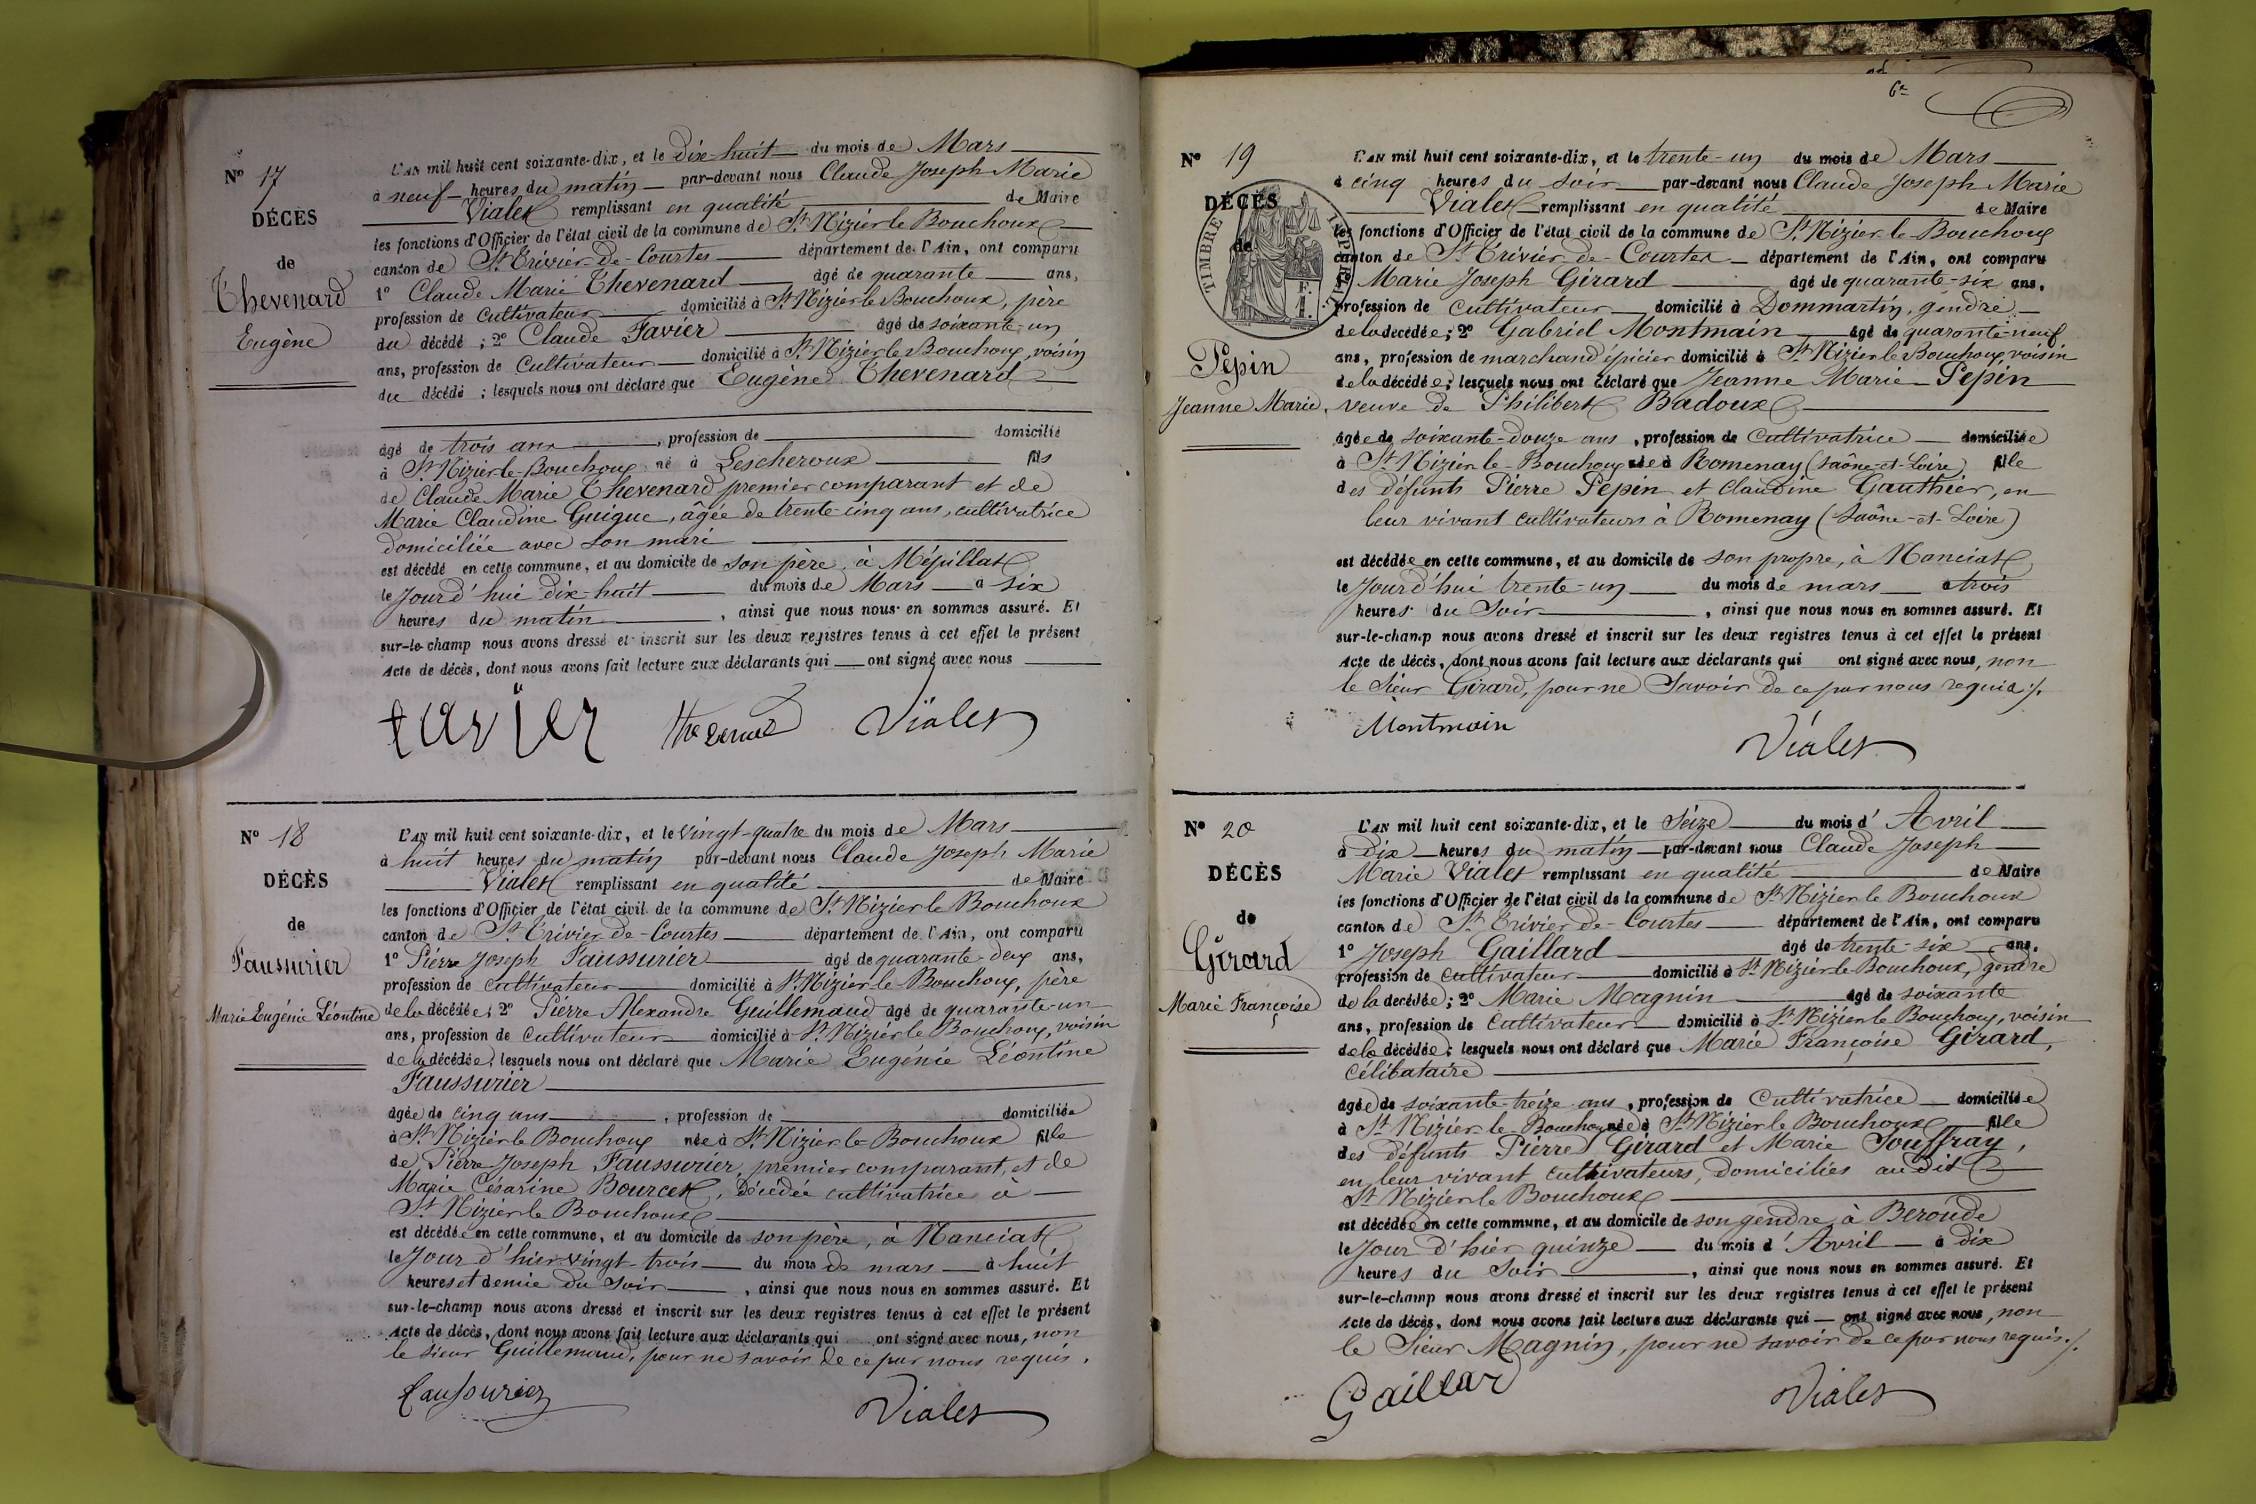 N° 17
DÉCÈS
de
Thevenard
Eugène
L'AN mil huit cent soixante-dix, et le dix-huit du mois de Mars
à neuf heures du matin par-devant nous Claude Joseph Marie
Vialet remplissant en qualité de Maire
les fonctions d'Officier de l'état civil de la commune de St Nizier le Bouchoux
canton de St Trivier-de-Courtes département de l'Ain, ont comparu
1° Claude Marie Thevenard âgé de quarante ans,
profession de cultivateur domicilié à St Nizier le Bouchoux, père
du décédé ; 2° Claude Favier âgé de soixante-un
ans, profession de Cultivateur domicilié à St Nizier le Bouchoux, voisin
du décédé ; lesquels nous ont déclaré que Eugène Thevenard
âgé de trois ans , profession de domicilié
à St Nizier-le-Bouchoux né à Lescheroux fils
de Claude Marie Thevenard premier comparant et de
Marie Claudine Guigue, âgée de trente-cinq ans, cultivatrice
domiciliée avec son mari
est décédé en cette commune, et au domicile de son père, à Mépillat
le Jour d'hui dix-huit du mois de Mars à six
heures du matin , ainsi que nous nous en sommes assuré. Et
sur-le-champ nous avons dressé et inscrit sur les deux registres tenus à cet effet le présent
Acte de décès, dont nous avons fait lecture aux déclarants qui ont signé avec nous
favier Thevenard Vialet
N° 18
DÉCÈS
de
Faussurier
Marie Eugénie Léontine
L'AN mil huit cent soixante-dix, et le vingt-quatre du mois de Mars
à huit heures du matin par-devant nous Claude Joseph Marie
Vialet remplissant en qualité de Maire
les fonctions d'Officier de l'état civil de la commune de St Nizier le Bouchoux
canton de St Trivier-de-Courtes département de l'Ain, ont comparu
1° Pierre Joseph Faussurier âgé de quarante-deux ans,
profession de cultivateur domicilié à St Nizier-le-Bouchoux, père
de la décédée ; 2° Pierre Alexandre Guillemaud âgé de quarante-un
ans, profession de cultivateur domicilié à St Nizier le Bouchoux, voisin
de la décédée ; lesquels nous ont déclaré que Marie Eugénie Léontine
Faussurier
âgée de cinq ans , profession de domiciliée
à St Nizier le Bouchoux née à St Nizier le Bouchoux fille
de Pierre Joseph Faussurier, premier comparant, et de
Marie Césarine Bourcet, décédée cultivatrice à
St Nizier le Bouchoux
est décédée en cette commune, et au domicile de son père, à Nanciat
le Jour d'hier vingt-trois du mois de mars à huit
heures et demie du Soir , ainsi que nous nous en sommes assuré. Et
sur-le-champ nous avons dressé et inscrit sur les deux registres tenus à cet effet le présent
Acte de décès, dont nous avons fait lecture aux déclarants qui ont signé avec nous, non
le sieur Guillemaud, pour ne savoir de ce par nous requis.
Faussurier Vialet
N° 19
DÉCÈS
de
TIMBRE IMPÉRIAL
Pepin
Jeanne Marie,
L'AN mil huit cent soixante-dix, et le trente-un du mois de Mars
à cinq heures du soir par-devant nous Claude Joseph Marie
Vialet remplissant en qualité de Maire
les fonctions d'Officier de l'état civil de la commune de St Nizier le Bouchoux
canton de St Trivier-de-Courtes département de l'Ain, ont comparu
1° Marie Joseph Girard âgé de quarante-six ans,
profession de Cultivateur domicilié à Dommartin, gendre
de la décédée ; 2° Gabriel Montmain âgé de quarante-neuf
ans, profession de marchand épicier domicilié à St Nizier le Bouchoux, voisin
de la décédée ; lesquels nous ont déclaré que Jeanne Marie Pepin
veuve de Philibert Badoux
âgée de soixante-douze ans , profession de cultivatrice domiciliée
à St Nizier-le-Bouchoux née à Romenay (Saône-et-Loire) fille
des défunts Pierre Pepin et Claudine Gauthier, en
leur vivant cultivateurs à Romenay (Saône-et-Loire)
est décédée en cette commune, et au domicile de son propre, à Nanciat
le Jour d'hui trente-un du mois de mars à trois
heures du Soir , ainsi que nous nous en sommes assuré. Et
sur-le-champ nous avons dressé et inscrit sur les deux registres tenus à cet effet le présent
Acte de décès, dont nous avons fait lecture aux déclarants qui ont signé avec nous, non
le Sieur Girard, pour ne Savoir de ce par nous requis.
Montmain Vialet
N° 20
DÉCÈS
de
Girard
Marie Françoise
L'AN mil huit cent soixante-dix, et le Seize du mois d'Avril
à dix heures du matin par-devant nous Claude Joseph
Marie Vialet remplissant en qualité de Maire
les fonctions d'Officier de l'état civil de la commune de St Nizier le Bouchoux
canton de St Trivier-de-Courtes département de l'Ain, ont comparu
1° Joseph Gaillard âgé de trente-six ans,
profession de cultivateur domicilié à St Nizier-le-Bouchoux, gendre
de la décédée ; 2° Marie Magnin âgé de soixante
ans, profession de Cultivateur domicilié à St Nizier le Bouchoux, voisin
de la décédée ; lesquels nous ont déclaré que Marie Françoise Girard,
Célibataire
âgée de soixante-treize ans , profession de Cultivatrice domiciliée
à St Nizier-le-Bouchoux née à St Nizier le Bouchoux fille
des défunts Pierre Girard et Marie Souffray,
en leur vivant cultivateurs, domiciliés audit
St Nizier le Bouchoux
est décédée en cette commune, et au domicile de son gendre à Beroude
le Jour d'hier quinze du mois d'Avril à dix
heures du Soir , ainsi que nous nous en sommes assuré. Et
sur-le-champ nous avons dressé et inscrit sur les deux registres tenus à cet effet le présent
Acte de décès, dont nous avons fait lecture aux déclarants qui ont signé avec nous, non
le Sieur Magnin, pour ne savoir de ce par nous requis.
Gaillard Vialet